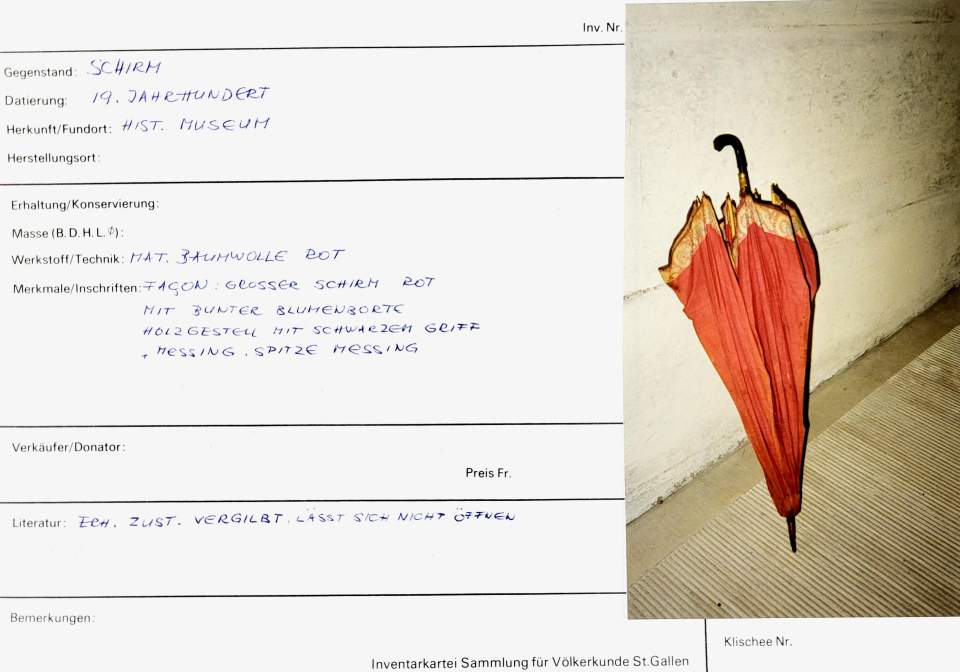 Inv. Nr.
Gegenstand: SCHIRM
Datierung: 19. JAHRHUNDERT
Herkunft/Fundort: HIST. MUSEUM
Herstellungsort:
Erhaltung/Konservierung:
Masse (B. D. H. L. Φ):
Werkstoff/Technik: MAT. BAUMWOLLE ROT
Merkmale/Inschriften: FAÇON: GROSSER SCHIRM ROT
MIT BUNTER BLUMENBORTE
HOLZGESTELL MIT SCHWARZEM GRIFF
+ MESSING. SPITZE MESSING
Verkäufer/Donator:
Preis Fr.
Literatur: ERH. ZUST. VERGILBT. LÄSST SICH NICHT ÖFFNEN
Bemerkungen:
Klischee Nr.
Inventarkartei Sammlung für Völkerkunde St.Gallen